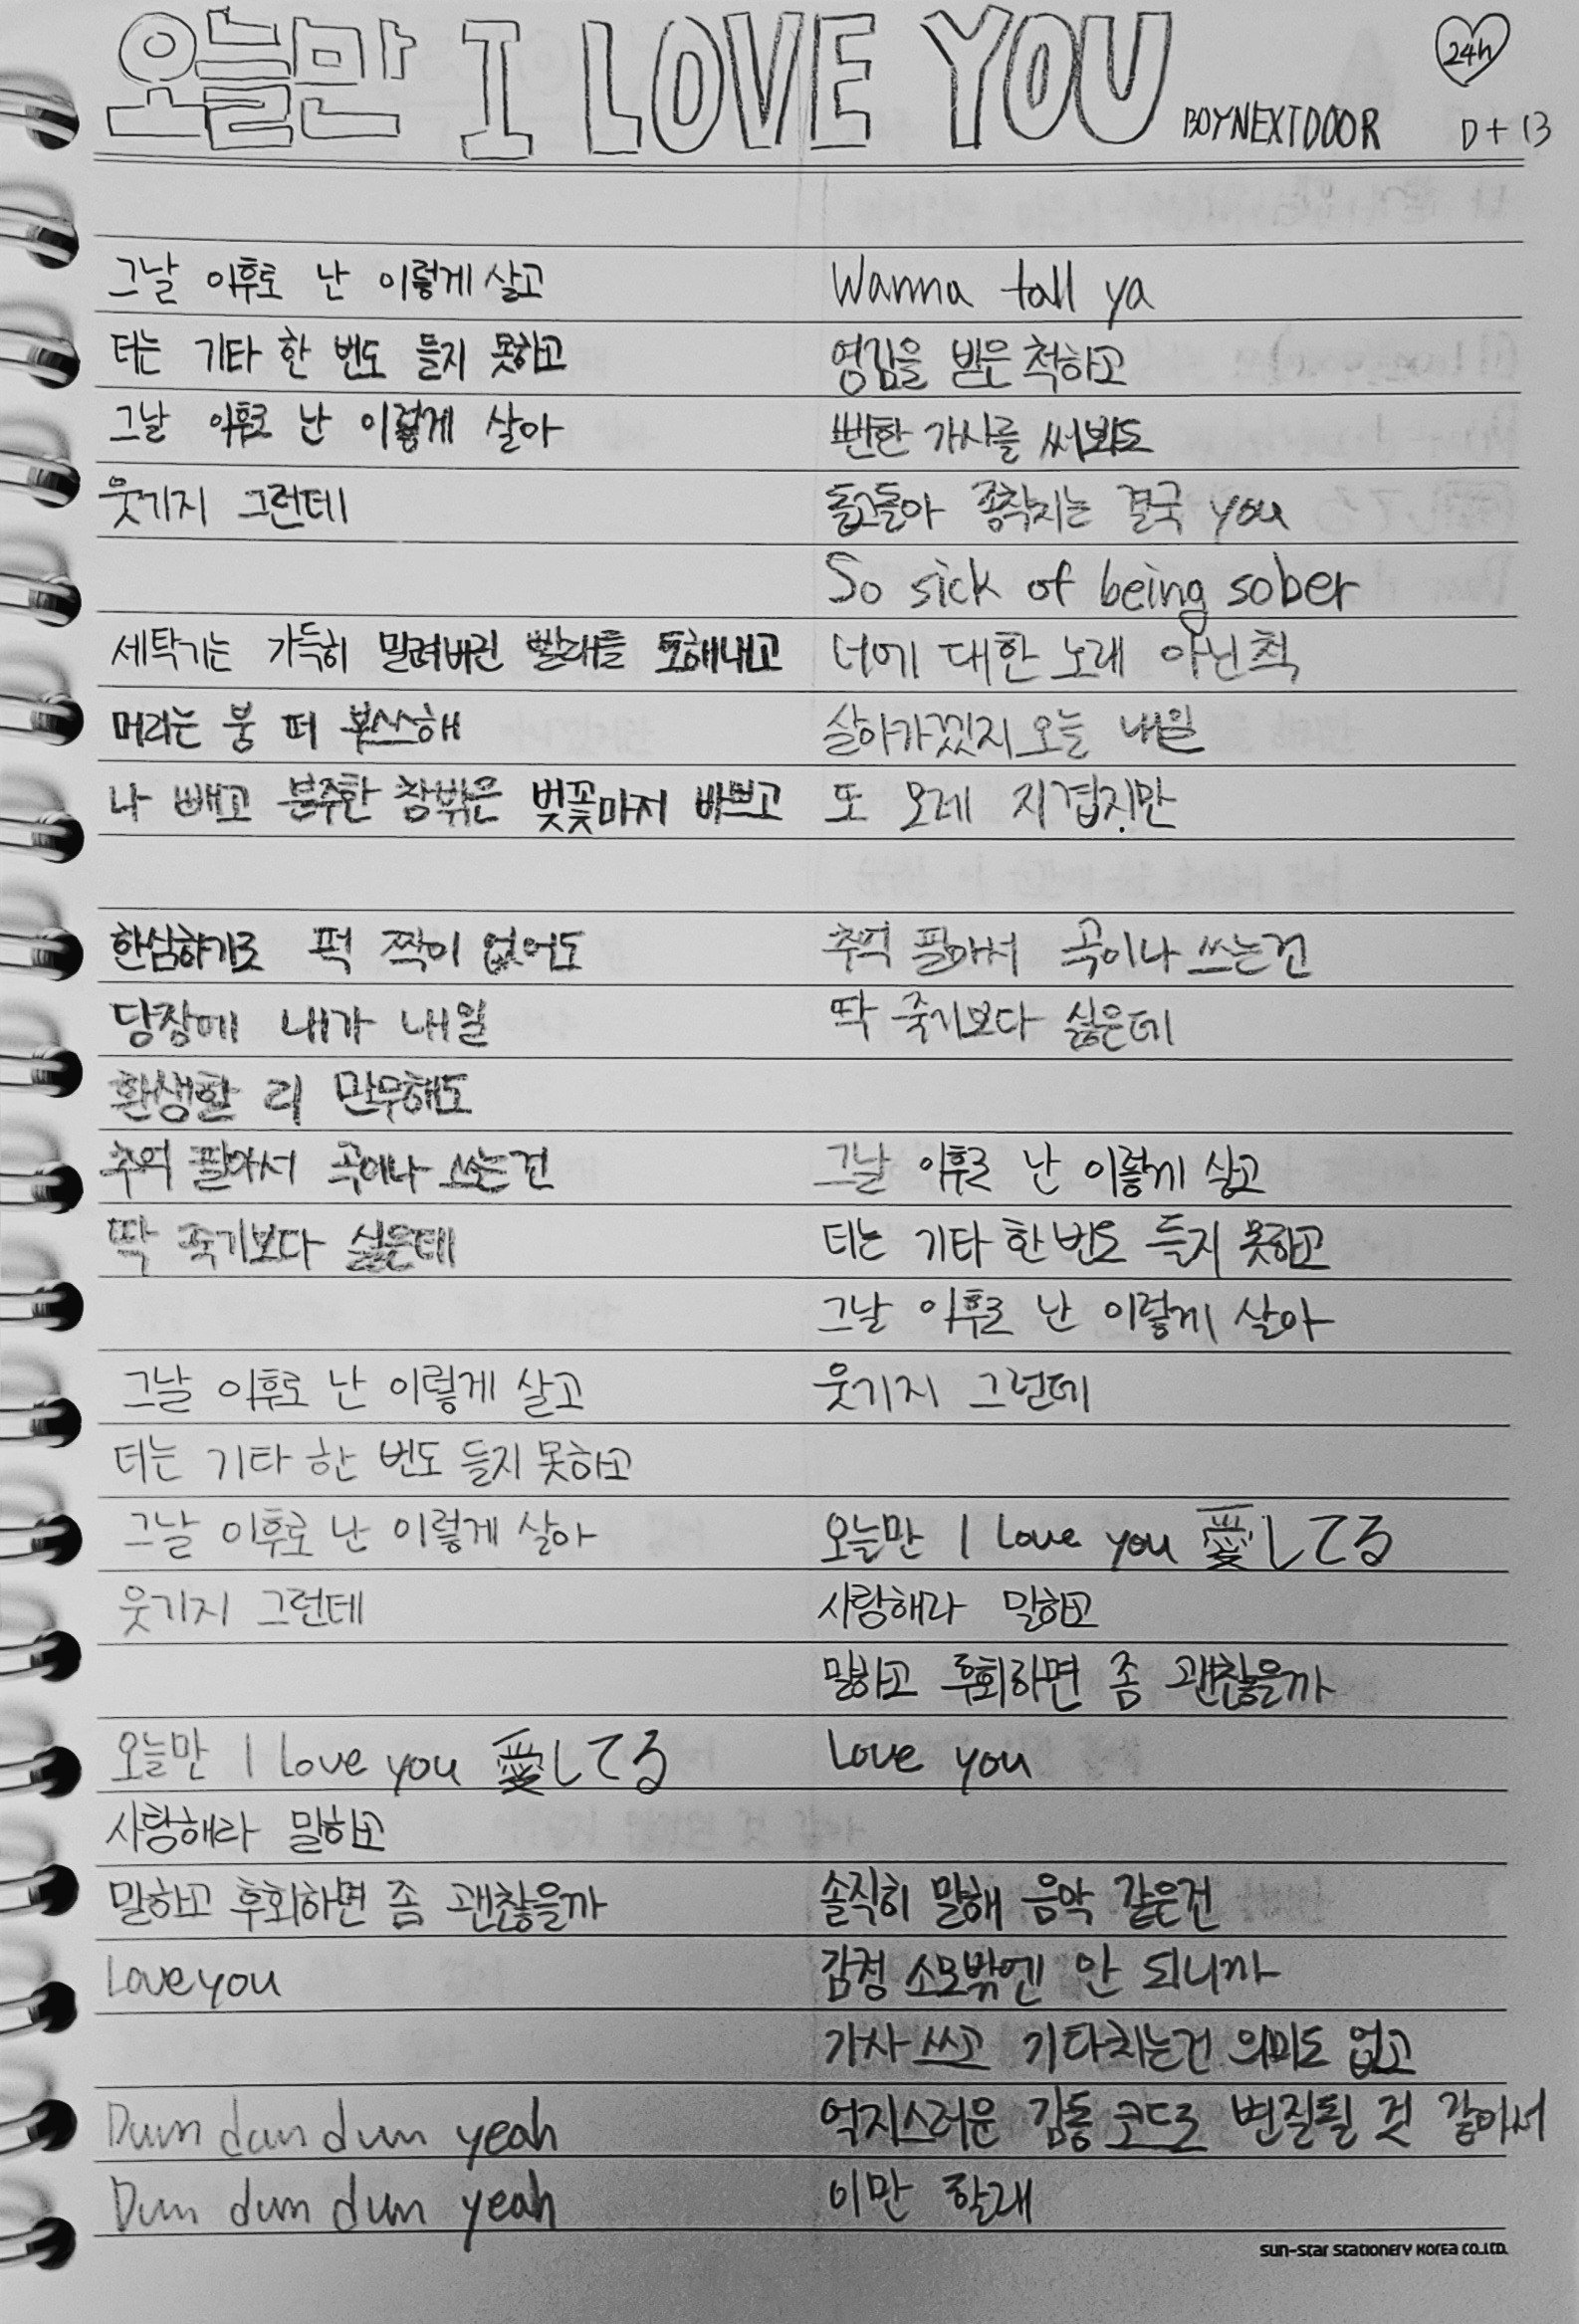 오늘만 I LOVE YOU BOYNEXTDOOR 24h D+13
그날 이후로 난 이렇게 살고
더는 기타 한 번도 들지 못하고
그날 이후로 난 이렇게 살아
웃기지 그런데
세탁기는 가득히 밀려버린 빨래들 토해내고
머리는 붕 떠 부스스해
나 빼고 분주한 창밖은 벚꽃마저 바쁘고
한심하기로 퍽 짝이 없어도
당장에 내가 내일
환생환 리 만무해도
추억 팔아서 곡이나 쓰는건
딱 죽기보다 싫은데
그날 이후로 난 이렇게 살고
더는 기타 한 번도 들지 못하고
그날 이후로 난 이렇게 살아
웃기지 그런데
오늘만 I love you 愛してる
사랑해라 말하고
말하고 후회하면 좀 괜찮을까
Love you
Dum dum dum yeah
Dum dum dum yeah
Wanna tall ya
영감을 받은 척하고
뻔한 가사를 써봐도
돌고돌아 종착지는 결국 you
So sick of being sober
너에 대한 노래 아닌 척
살아가겠지 오늘 내일
또 모레 지겹지만
추억 팔아서 곡이나 쓰는건
딱 죽기보다 싫은데
그날 이후로 난 이렇게 살고
더는 기타 한 번도 들지 못하고
그날 이후로 난 이렇게 살아
웃기지 그런데
오늘만 I love you 愛してる
사랑해라 말하고
말하고 후회하면 좀 괜찮을까
Love you
솔직히 말해 음악 같은건
감정 소모밖엔 안 되니까
가사 쓰고 기타치는건 의미도 없고
억지스러운 감동 코드로 변질될 것 같아서
이만 할래
Sun-Star Stationery Korea Co.,Ltd.